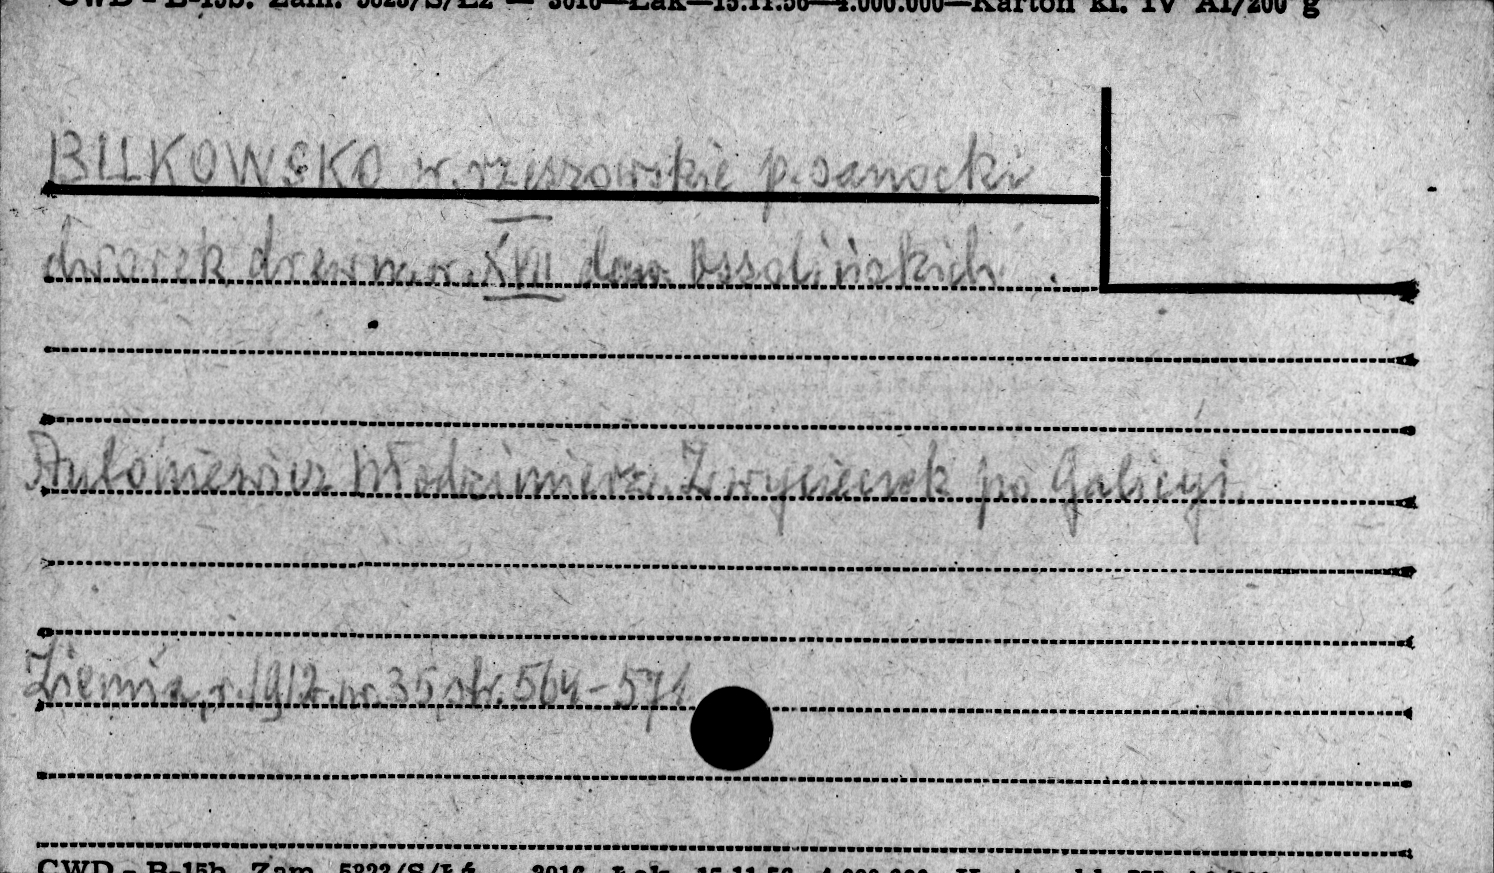 CWD - B-15b. Zam. 5823/S/Łź — 3016—Łak—15.11.56—4.000.000—Karton kl. IV A1/200 g
BUKOWSKO w. rzeszowskie p. sanocki
dworek drewn. w. XVII daw. Ossolińskich.
Antoniewicz Włodzimierz. Z wycieczek po Galicyi.
Ziemia, r. 1912. nr. 35, str. 564-571
CWD - B-15b. Zam. 5823/S/Łź 3016 Łak 15.11.56 4.000.000